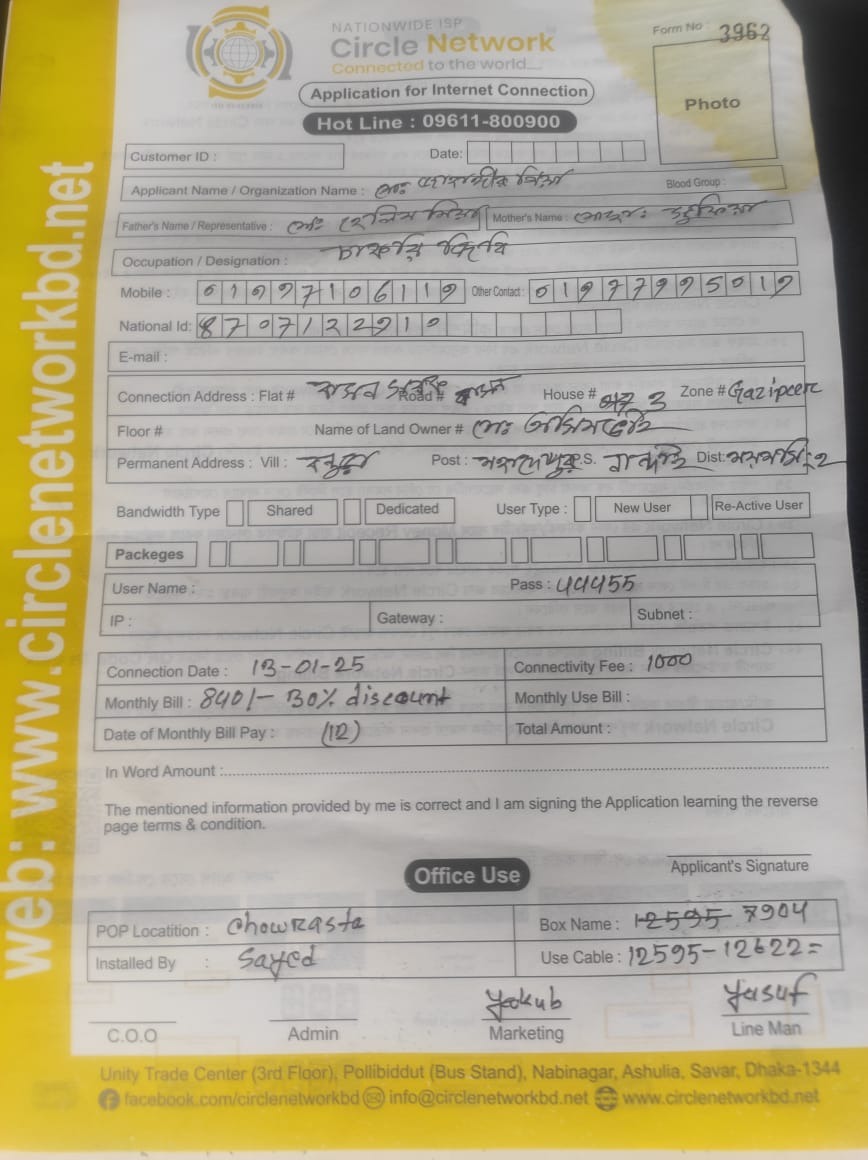 NATIONWIDE ISP
Circle Network
Connected to the world....
Form No : 3962
Application for Internet Connection
Photo
Hot Line : 09611-800900
Customer ID :
Date:
Applicant Name / Organization Name : মোঃ মিয়া
Blood Group :
Father's Name / Representative : মোঃ মিয়া
Mother's Name : মোছাঃ
Occupation / Designation :
Mobile :
Other Contact :
National Id:
E-mail :
Connection Address : Flat # Road # House # Zone # Gazipur
Floor # Name of Land Owner # মোঃ
Permanent Address : Vill : Post : P.S. Dist:
Bandwidth Type Shared Dedicated User Type : New User Re-Active User
Packeges
User Name : Pass : 44455
IP : Gateway : Subnet :
Connection Date : 13-01-25 Connectivity Fee : 1000
Monthly Bill : 840/- 30% discount Monthly Use Bill :
Date of Monthly Bill Pay : (12) Total Amount :
In Word Amount :
The mentioned information provided by me is correct and I am signing the Application learning the reverse
page terms & condition.
Applicant's Signature
Office Use
POP Locatition : Chowrasta Box Name : 12595 7904
Installed By : Sayed Use Cable : 12595-12622=
Yakub Yusuf
C.O.O Admin Marketing Line Man
Unity Trade Center (3rd Floor), Pollibiddut (Bus Stand), Nabinagar, Ashulia, Savar, Dhaka-1344
facebook.com/circlenetworkbd info@circlenetworkbd.net www.circlenetworkbd.net
web: www.circlenetworkbd.net